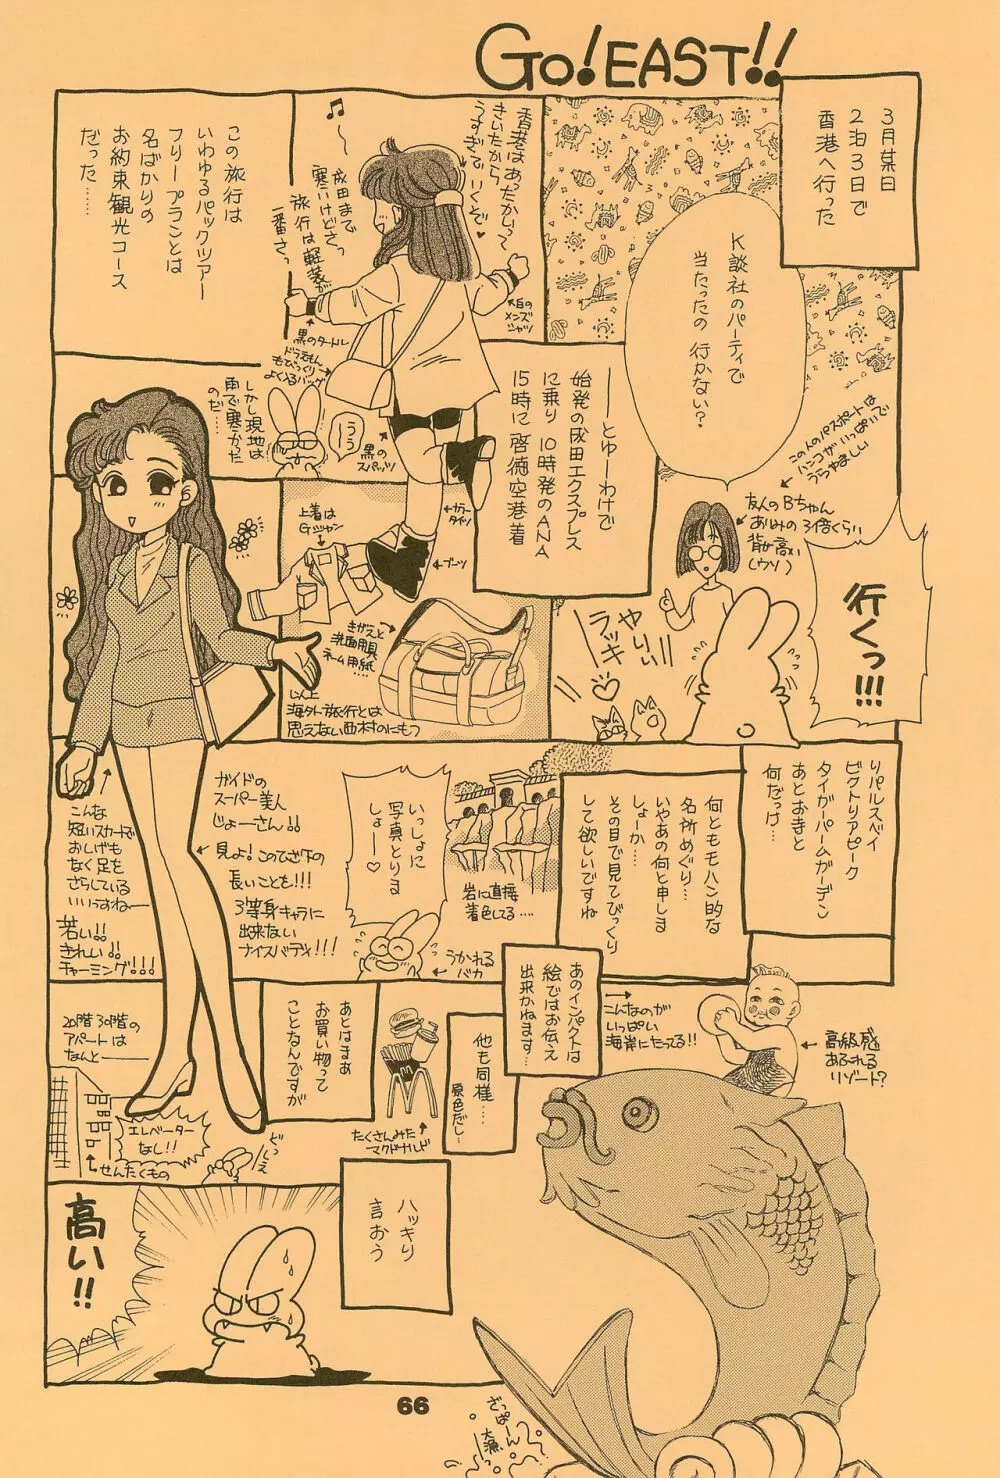 GO! EAST!!
3月某日
2泊3日で
香港へ行った
K談社のパーティで
当たったの 行かない?
この人のパスポートは
ハンコがいっぱいで
うらやましい
友人のBちゃん
あゆみの3倍くらい
背が高い
(ウソ)
行くっ!!!
やりぃ!!
ラッキー♡
――とゆーわけで
始発の成田エクスプレス
に乗り 10時発のANA
15時に啓徳空港着
香港はあったかいって
きいたから
うすぎで いくぞ♥
♫〜
成田まで
寒いけどさっ
旅行は軽装が
一番さっ
大白の
メンズ
シャツ
黒のタートル
ドラえもん
もびっくり
よく入るバッグ
黒の
スパッツ
カラー
タイツ
ブーツ
この旅行は
いわゆるパックツアー
フリープランとは
名ばかりの
お約束観光コース
だった……
しかし現地は
雨で寒かった
のだ……
うぅー
上着は
Gジャン
きがえと
洗面用具
ネーム用紙
以上
海外旅行とは
思えない西村のにもつ
リパルスベイ
ビクトリアピーク
タイガーバームガーデン
あとおきと
何だっけ…
何ともモハン的な
名所めぐり…
いやあの何と申しま
しょーか…
その目で見てびっくり
して欲しいですね
岩に直接
着色してる….
いっしょに
写真とりま
しょー♡
うかれる
バカ
ガイドの
スーパー美人
じょーさん!!
見よ!このひざ下の
長いことを!!!
3等身キャラに
出来ない
ナイスバディ!!!
こんな
短いスカートで
おしげも
なく足を
さらしている
いいっすねー
若い!!
きれい!!
チャーミング!!!
あのインパクトは
絵ではお伝え
出来かねます…
こんなのが
いっぱい
海岸にたってる!!
高級感
あふれる
リゾート?
他も同様…
原色だし…
たくさんみた
マクドナルド
あとはまぁ
お買い物って
ことなんですが
20階30階の
アパートは
なんと――
エレベーター
なし!!
せんたくもの
どしぇ
ハッキリ
言おう
高い!!
ざっぱーん
大漁
66